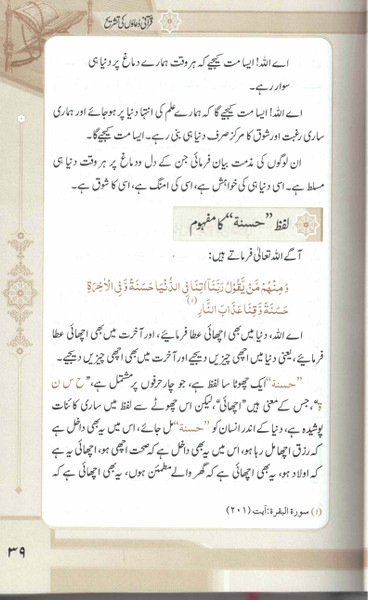 قرآنی دعاؤں کی تشریح
اے اللہ! ایسا مت کیجیے کہ ہر وقت ہمارے دماغ پر دنیا ہی
سوار رہے۔
اے اللہ! ایسا مت کیجیے گا کہ ہمارے علم کی انتہا دنیا پر ہوجائے اور ہماری
ساری رغبت اور شوق کا مرکز صرف دنیا ہی بنی رہے۔ ایسا مت کیجیے گا۔
ان لوگوں کی مذمت بیان فرمائی جن کے دل و دماغ پر ہر وقت دنیا ہی
مسلط ہے۔ اسی دنیا ہی کی خواہش ہے، اسی کی امنگ ہے، اسی کا شوق ہے۔
لفظ ”حسنة“ کا مفہوم
آگے اللہ تعالیٰ فرماتے ہیں:
وَمِنْهُمْ مَّنْ يَّقُوْلُ رَبَّنَا اٰتِنَا فِي الدُّنْيَا حَسَنَةً وَّفِي الْاٰخِرَةِ
حَسَنَةً وَّقِنَا عَذَابَ النَّارِ (۱)
اے اللہ، دنیا میں بھی اچھائی عطا فرمائیے، اور آخرت میں بھی اچھائی عطا
فرمائیے، یعنی دنیا میں اچھی چیزیں دیجیے اور آخرت میں بھی اچھی چیزیں دیجیے۔
”حسنة“ ایک چھوٹا سا لفظ ہے، جو چار حرفوں پر مشتمل ہے، ”ح س ن
ة“، جس کے معنی ہیں ”اچھائی“، لیکن اس چھوٹے سے لفظ میں ساری کائنات
پوشیدہ ہے، دنیا کے اندر انسان کو ”حسنة“ مل جائے، اس میں یہ بھی داخل ہے
کہ رزق اچھا مل رہا ہو، اس میں یہ بھی داخل ہے کہ صحت اچھی ہو، اچھائی یہ ہے
کہ اولاد ہو، یہ بھی اچھائی ہے کہ گھر والے مطمئن ہوں، یہ بھی اچھائی ہے کہ
(۱) سورة البقرة: آیت (۲۰۱)
۳۹